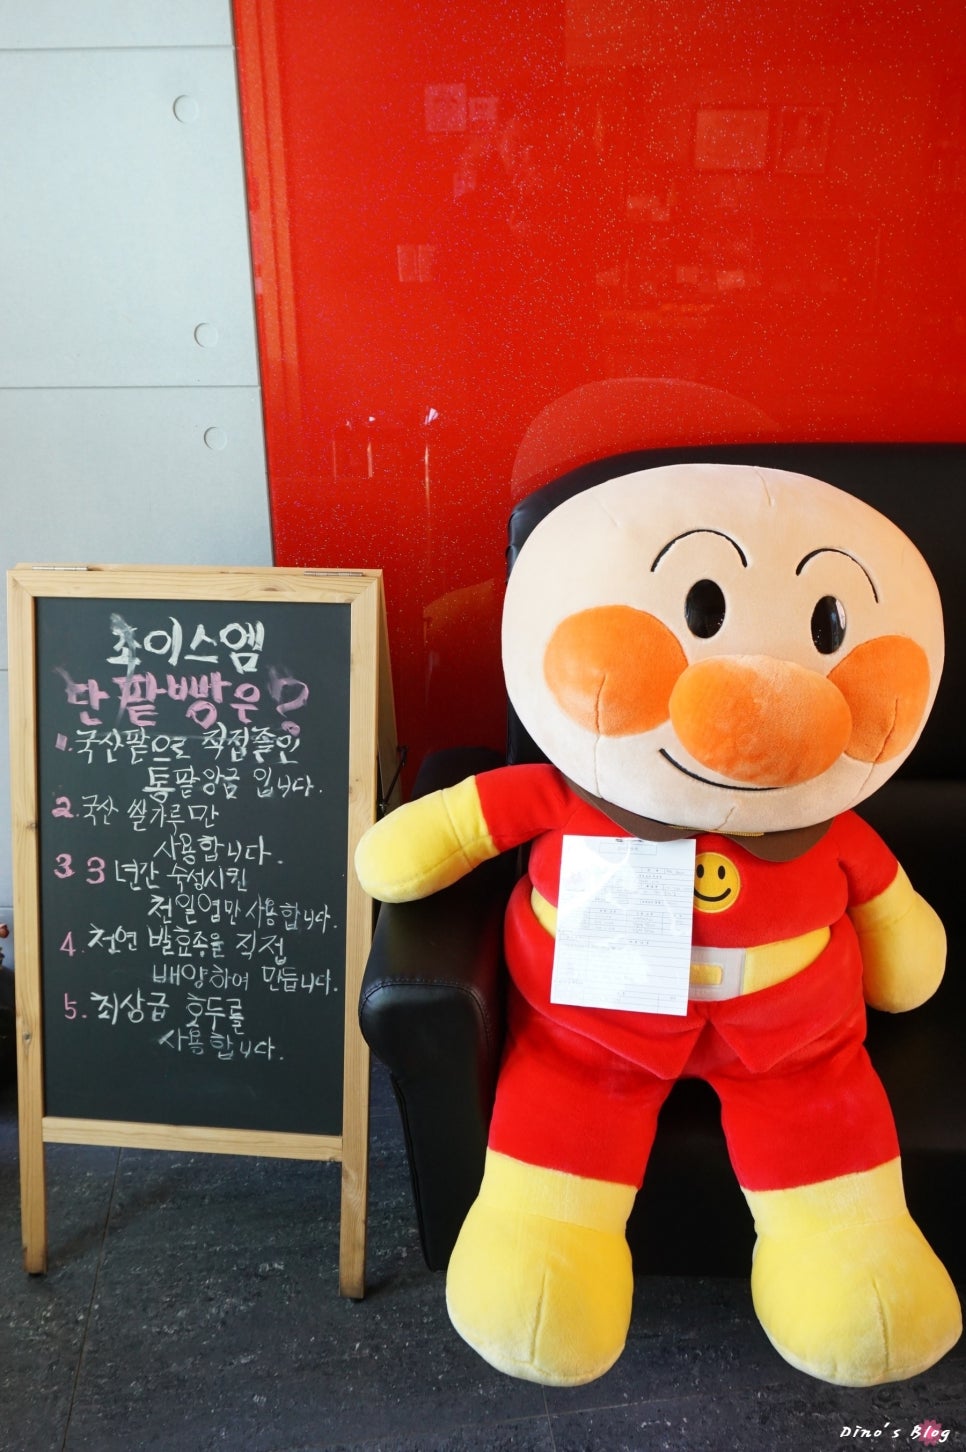 조이스엠
단팥빵은?
1. 국산팥으로 직접졸인
통팥앙금 입니다.
2. 국산 쌀가루만
사용합니다.
3 3년간 숙성시킨
천일염만 사용합니다.
4. 천연 발효종을 직접
배양하여 만듭니다.
5. 최상급 호두를
사용합니다.
Dino's Blog